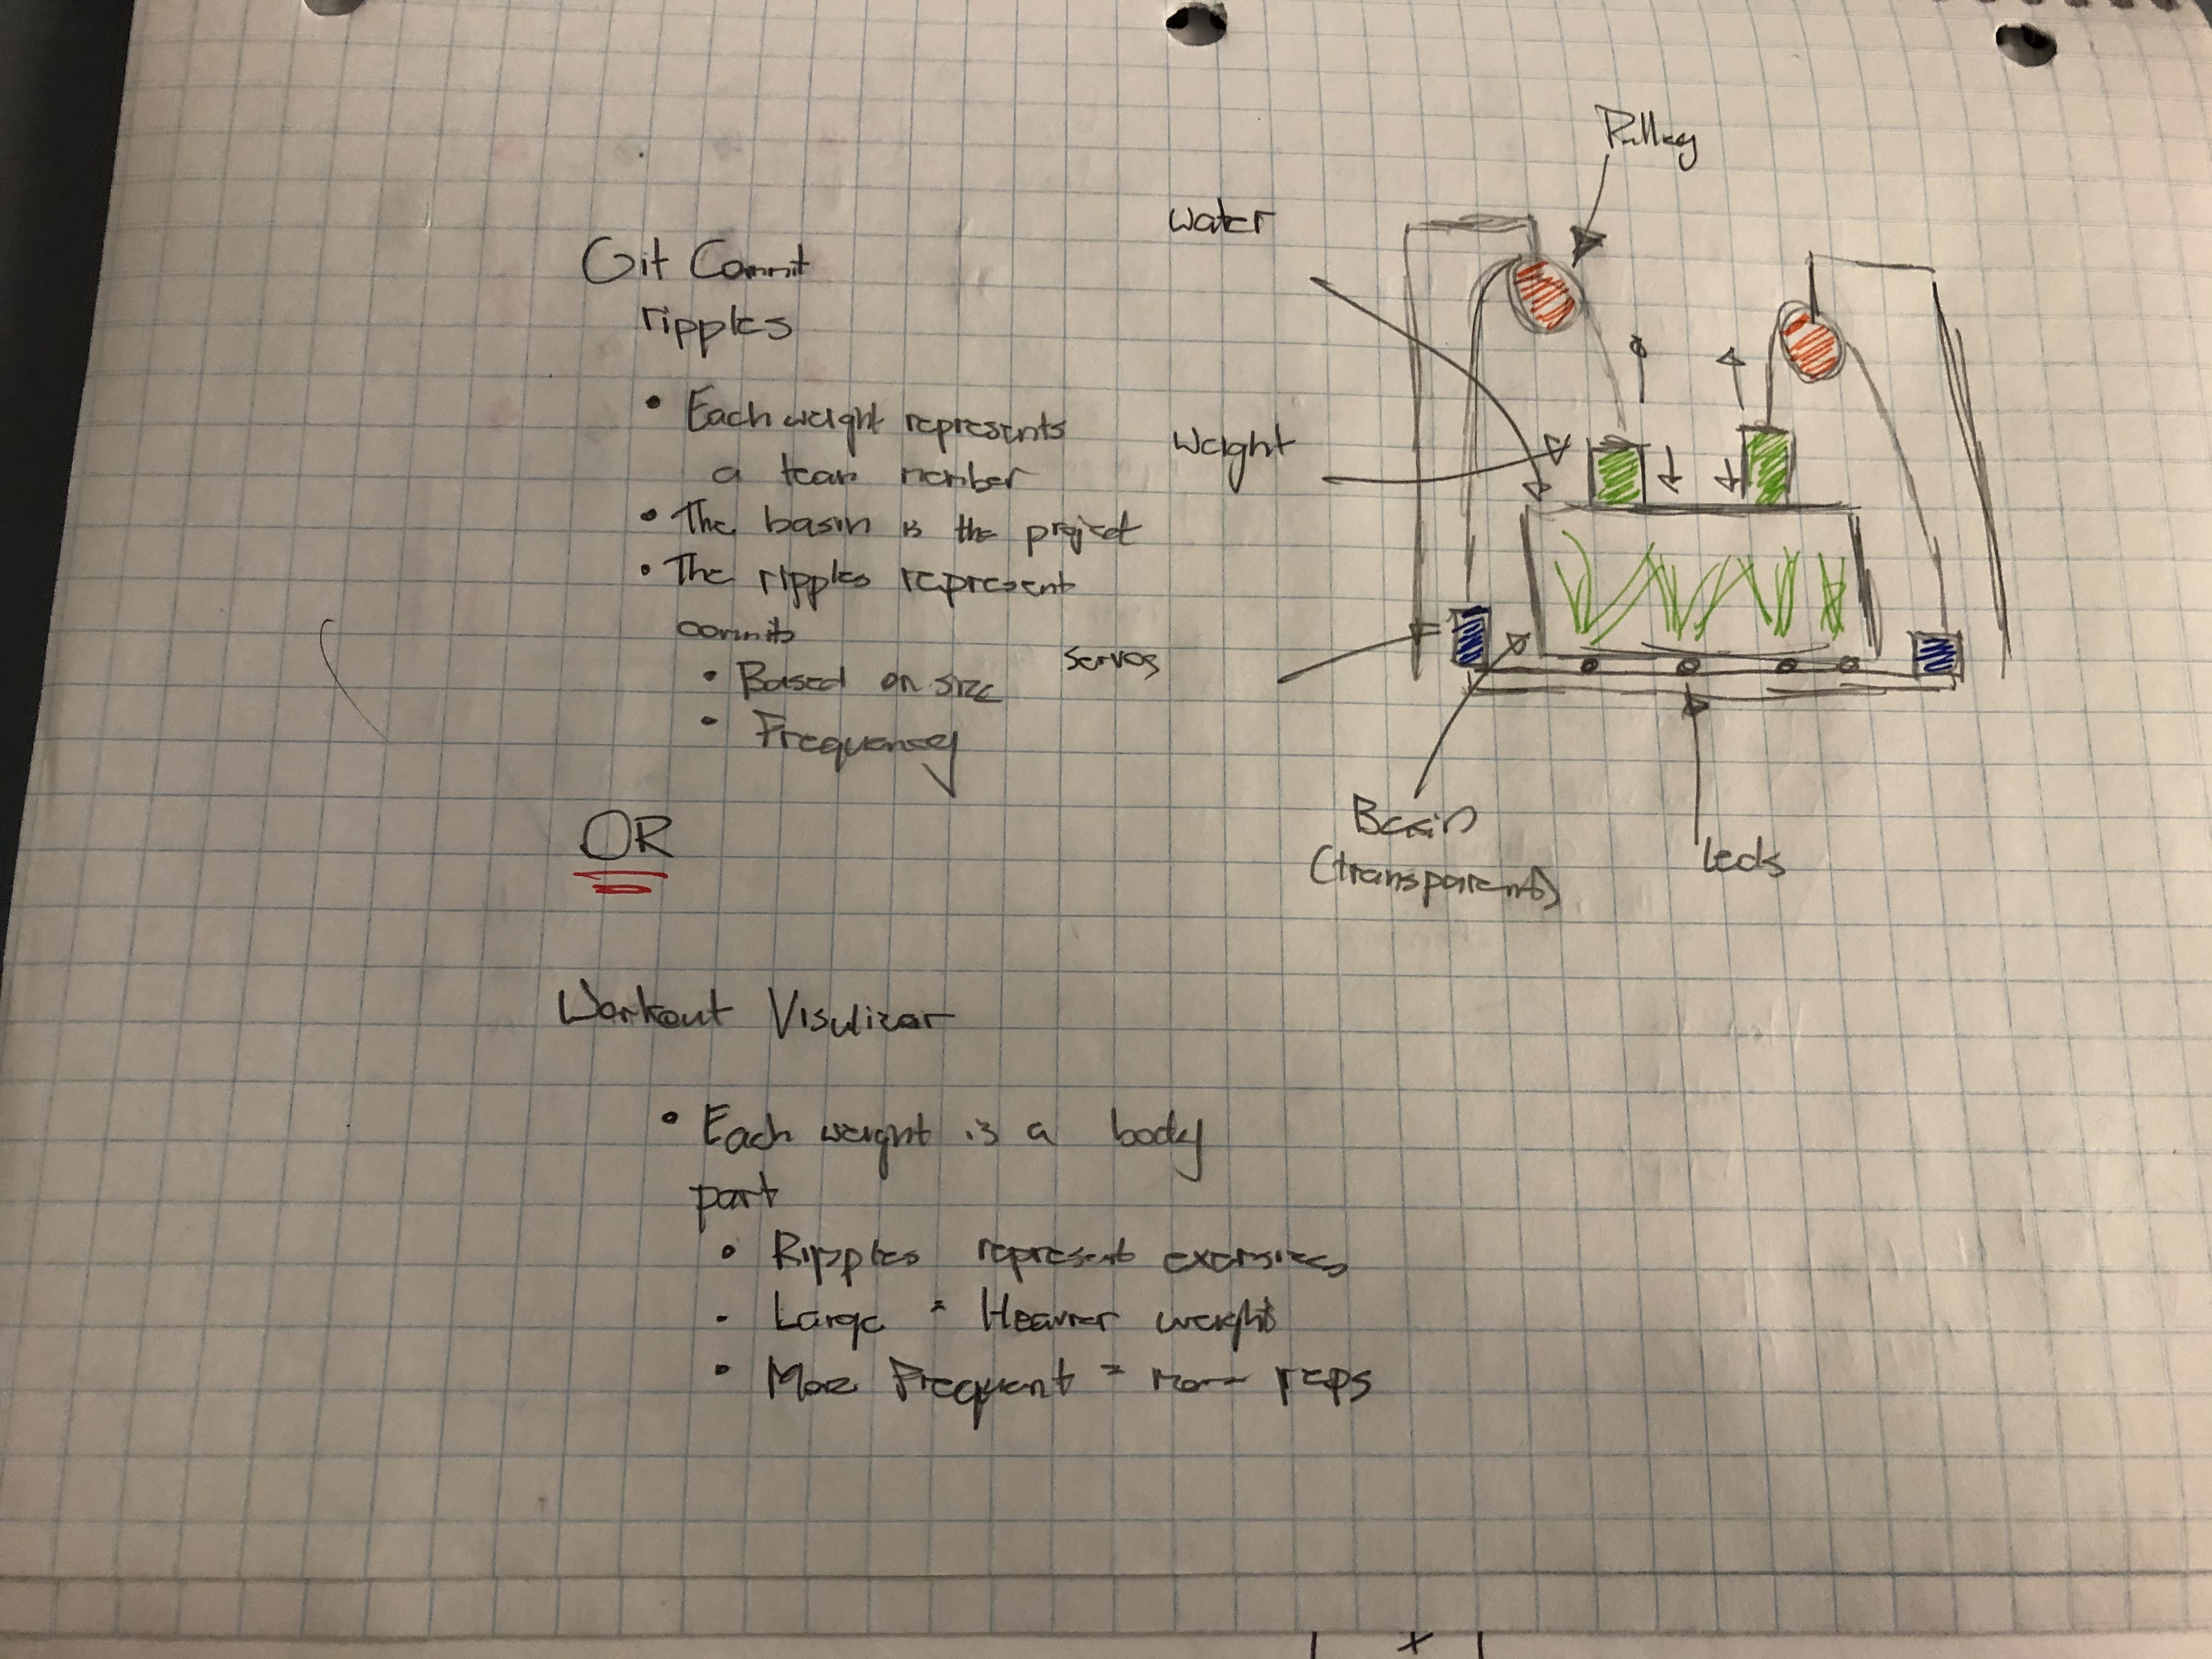 Git Commit
ripples
• Each weight represents
a team member
• The basin is the project
• The ripples represent
commits
• Based on size
• Frequency
OR
Workout Visulizer
• Each weight is a body
part
• Ripples represent exersizes
• Large = Heavier weight
• More Frequent = more reps
Pulley
water
Weight
servos
Basin
(transparent)
leds